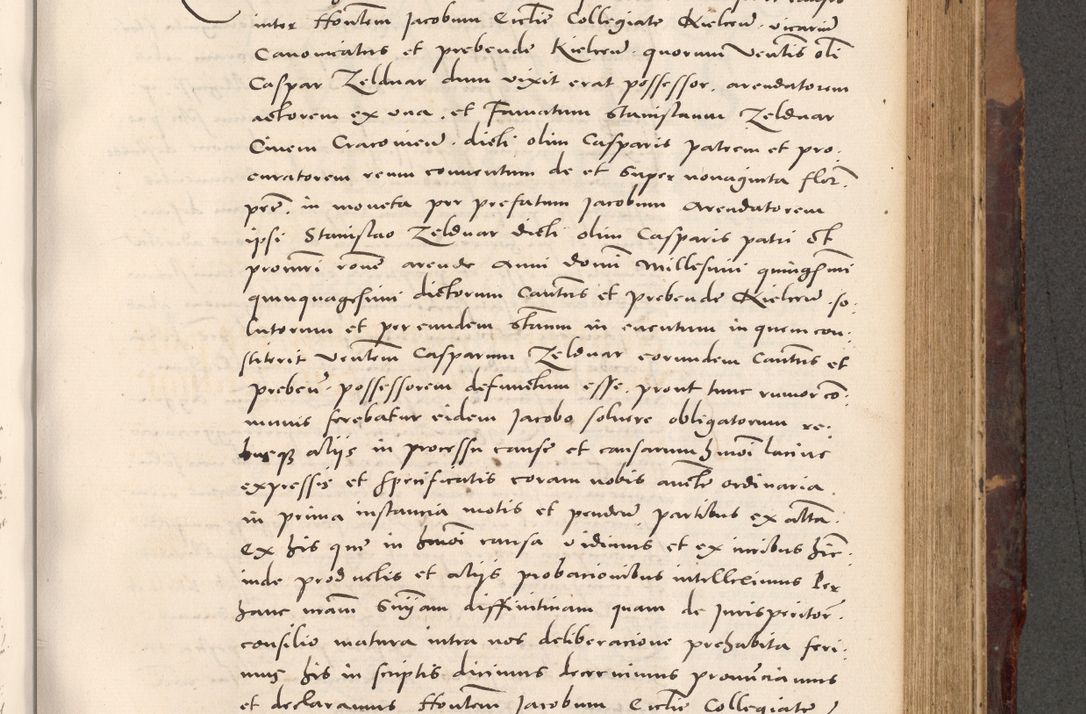 inter Honẽm Jacobum Ecclie Collegiate Kielcen̄. vicariū
Canonicatus et prebende Kielcen̄. quorum Venłis oli
Caspar Zelduar dum vixit erat possessor. arendatorem
actorem ex vna. et Famatum Stanislaum Zelduar
Civem Cracovien̄. dicti olim Casparis patrem et pro-
curatorem reum conventum de et super nonaginta flor.
pēr. in moneta per prefatum Jacobum Arendatorem
ipsi Stanislao Zelduar dicti olim Casparis patri et
procuri rone arende Anni domi Millesimi quingmi
quinquagesimi dictorum Cantus et prebende Kielcen̄. so-
lutorum et per eundem Stanm in eventum in quem con-
stiterit Venłem Casparum Zelduar eorundem Cantus et
preben̄. possessorem defunctum esse. prout tunc rumor co-
munis ferebatur eidem Jacobo solvere obligatorum re-
busq alijs in processu cause et causarum hmoi lacius
expressis et specificatis coram nobis aucte ordinaria
in prima instancia motis et penden̄. partibus ex altera.
Ex his que in hmoi causa vidimus et ex iuribus hic-
inde productis et alijs probacionibus intelleximus Per
hanc nram Snijam diffinitivam quam de Jurisperitor.
consilio matura intra nos deliberacione prehabita feri-
mus his in scriptis dicimus decrevimus pronunciamus
et declaramus Honẽm Jacobum Ecclie Collegiate